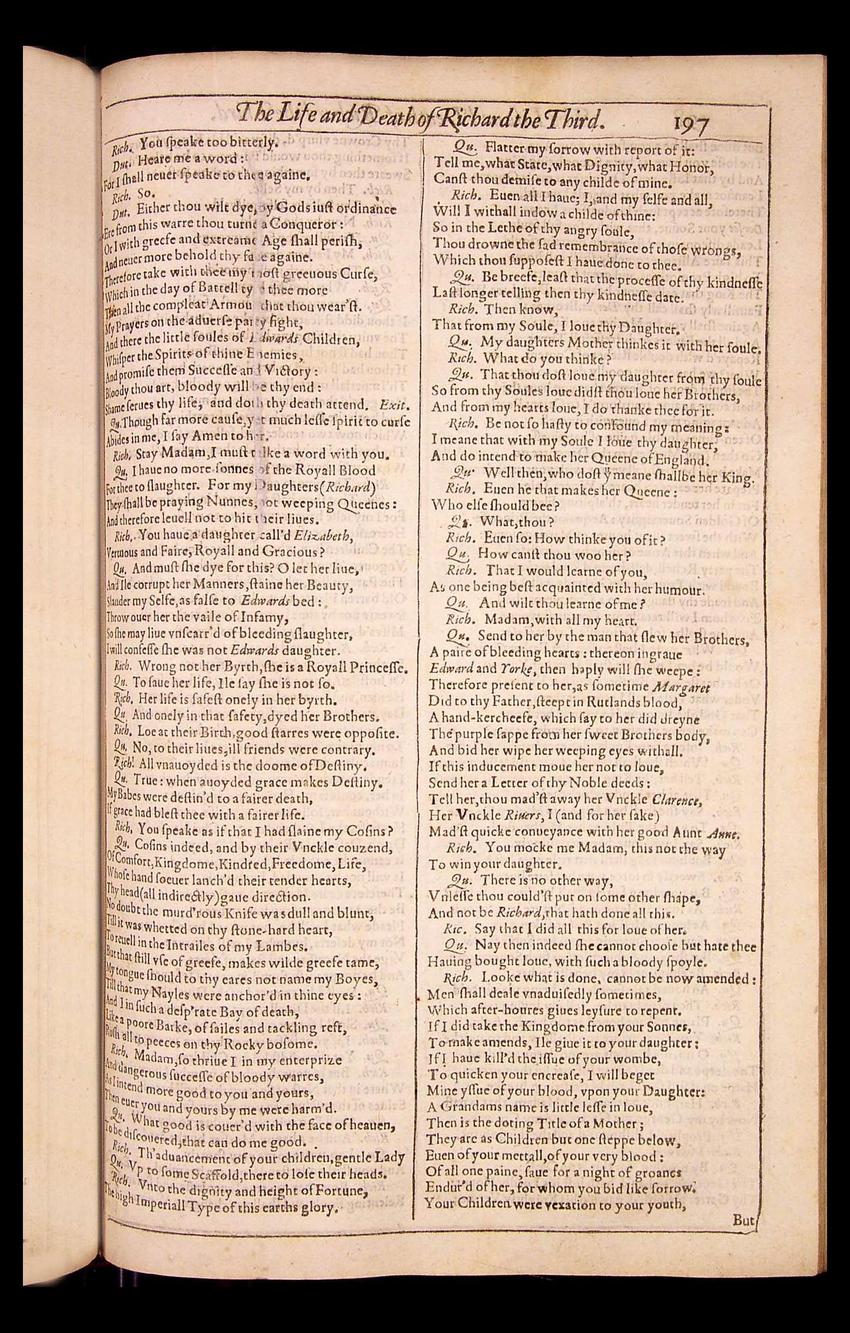 The Life and Death of Richard the Third. 197
Rich. You ſpeake too bitterly.
Dut. Heare me a word:
For I ſhall neuer ſpeake to thee againe.
Rich. So.
Dut. Either thou wilt dye, by Gods iuſt ordinance
Ere from this warre thou turne a Conqueror:
Or I with greefe and extreame Age ſhall periſh,
And neuer more behold thy face againe.
Therefore take with thee my moſt greeuous Curſe,
Which in the day of Battell tyre thee more
Then all the compleat Armour that thou wear'ſt.
My Prayers on the aduerſe party fight,
And there the little ſoules of Edwards Children,
Whiſper the Spirits of thine Enemies,
And promiſe them Succeſſe and Victory:
Bloody thou art, bloody will be thy end:
Shame ſerues thy life, and doth thy death attend. Exit.
Qu. Though far more cauſe, yet much leſſe ſpirit to curſe
Abides in me, I ſay Amen to her.
Rich. Stay Madam, I muſt talke a word with you.
Qu. I haue no more ſonnes of the Royall Blood
For thee to ſlaughter. For my Daughters (Richard)
They ſhall be praying Nunnes, not weeping Queenes:
And therefore leuell not to hit their liues.
Rich. You haue a daughter call'd Elizabeth,
Vertuous and Faire, Royall and Gracious?
Qu. And muſt ſhe dye for this? O let her liue,
And Ile corrupt her Manners, ſtaine her Beauty,
Slander my Selfe, as falſe to Edwards bed:
Throw ouer her the vaile of Infamy,
So ſhe may liue vnſcarr'd of bleeding ſlaughter,
I will confeſſe ſhe was not Edwards daughter.
Rich. Wrong not her Byrth, ſhe is a Royall Princeſſe.
Qu. To ſaue her life, Ile ſay ſhe is not ſo.
Rich. Her life is ſafeſt onely in her byrth.
Qu. And onely in that ſafety, dyed her Brothers.
Rich. Loe at their Birth, good ſtarres were oppoſite.
Qu. No, to their liues, ill friends were contrary.
Rich. All vnauoyded is the doome of Deſtiny.
Qu. True: when auoyded grace makes Deſtiny.
My Babes were deſtin'd to a fairer death,
If grace had bleſt thee with a fairer life.
Rich. You ſpeake as if that I had ſlaine my Coſins?
Qu. Coſins indeed, and by their Vnckle couzend,
Of Comfort, Kingdome, Kindred, Freedome, Life,
Whoſe hand ſoeuer lanch'd their tender hearts,
Thy head (all indirectly) gaue direction.
No doubt the murd'rous Knife was dull and blunt,
Till it was whetted on thy ſtone-hard heart,
To reuell in the Intrailes of my Lambes.
But that ſtill vſe of greefe, makes wilde greefe tame,
My tongue ſhould to thy eares not name my Boyes,
Till that my Nayles were anchor'd in thine eyes:
And I in ſuch a deſp'rate Bay of death,
Like a poore Barke, of ſailes and tackling reft,
Ruſh all to peeces on thy Rocky boſome.
Rich. Madam, ſo thriue I in my enterprize
And dangerous ſucceſſe of bloody warres,
As I intend more good to you and yours,
Then euer you and yours by me were harm'd.
Qu. What good is couer'd with the face of heauen,
To be diſcouered, that can do me good.
Rich. Th'aduancement of your children, gentle Lady
Qu. Vp to ſome Scaffold, there to loſe their heads.
Rich. Vnto the dignity and height of Fortune,
The high Imperiall Type of this earths glory.
Qu. Flatter my ſorrow with report of it:
Tell me, what State, what Dignity, what Honor,
Canſt thou demiſe to any childe of mine.
Rich. Euen all I haue; I, and my ſelfe and all,
Will I withall indow a childe of thine:
So in the Lethe of thy angry ſoule,
Thou drowne the ſad remembrance of thoſe wrongs,
Which thou ſuppoſeſt I haue done to thee.
Qu. Be breefe, leaſt that the proceſſe of thy kindneſſe
Laſt longer telling then thy kindneſſe date.
Rich. Then know,
That from my Soule, I loue thy Daughter.
Qu. My daughters Mother thinkes it with her ſoule.
Rich. What do you thinke?
Qu. That thou doſt loue my daughter from thy ſoule
So from thy Soules loue didſt thou loue her Brothers,
And from my hearts loue, I do thanke thee for it.
Rich. Be not ſo haſty to confound my meaning:
I meane that with my Soule I loue thy daughter,
And do intend to make her Queene of England.
Qu. Well then, who doſt ỹ meane ſhallbe her King.
Rich. Euen he that makes her Queene:
Who elſe ſhould bee?
Qu. What, thou?
Rich. Euen ſo: How thinke you of it?
Qu. How canſt thou woo her?
Rich. That I would learne of you,
As one being beſt acquainted with her humour.
Qu. And wilt thou learne of me?
Rich. Madam, with all my heart.
Qu. Send to her by the man that ſlew her Brothers,
A paire of bleeding hearts: thereon ingraue
Edward and Yorke, then haply will ſhe weepe:
Therefore preſent to her, as ſometime Margaret
Did to thy Father, ſteept in Rutlands blood,
A hand-kercheefe, which ſay to her did dreyne
The purple ſappe from her ſweet Brothers body,
And bid her wipe her weeping eyes withall.
If this inducement moue her not to loue,
Send her a Letter of thy Noble deeds:
Tell her, thou mad'ſt away her Vnckle Clarence,
Her Vnckle Riuers, I (and for her ſake)
Mad'ſt quicke conueyance with her good Aunt Anne.
Rich. You mocke me Madam, this not the way
To win your daughter.
Qu. There is no other way,
Vnleſſe thou could'ſt put on ſome other ſhape,
And not be Richard, that hath done all this.
Ric. Say that I did all this for loue of her.
Qu. Nay then indeed ſhe cannot chooſe but hate thee
Hauing bought loue, with ſuch a bloody ſpoyle.
Rich. Looke what is done, cannot be now amended:
Men ſhall deale vnaduiſedly ſometimes,
Which after-houres giues leyſure to repent.
If I did take the Kingdome from your Sonnes,
To make amends, Ile giue it to your daughter:
If I haue kill'd the iſſue of your wombe,
To quicken your encreaſe, I will beget
Mine yſſue of your blood, vpon your Daughter:
A Grandams name is little leſſe in loue,
Then is the doting Title of a Mother;
They are as Children but one ſteppe below,
Euen of your mettall, of your very blood:
Of all one paine, ſaue for a night of groanes
Endur'd of her, for whom you bid like ſorrow.
Your Children were vexation to your youth,
But